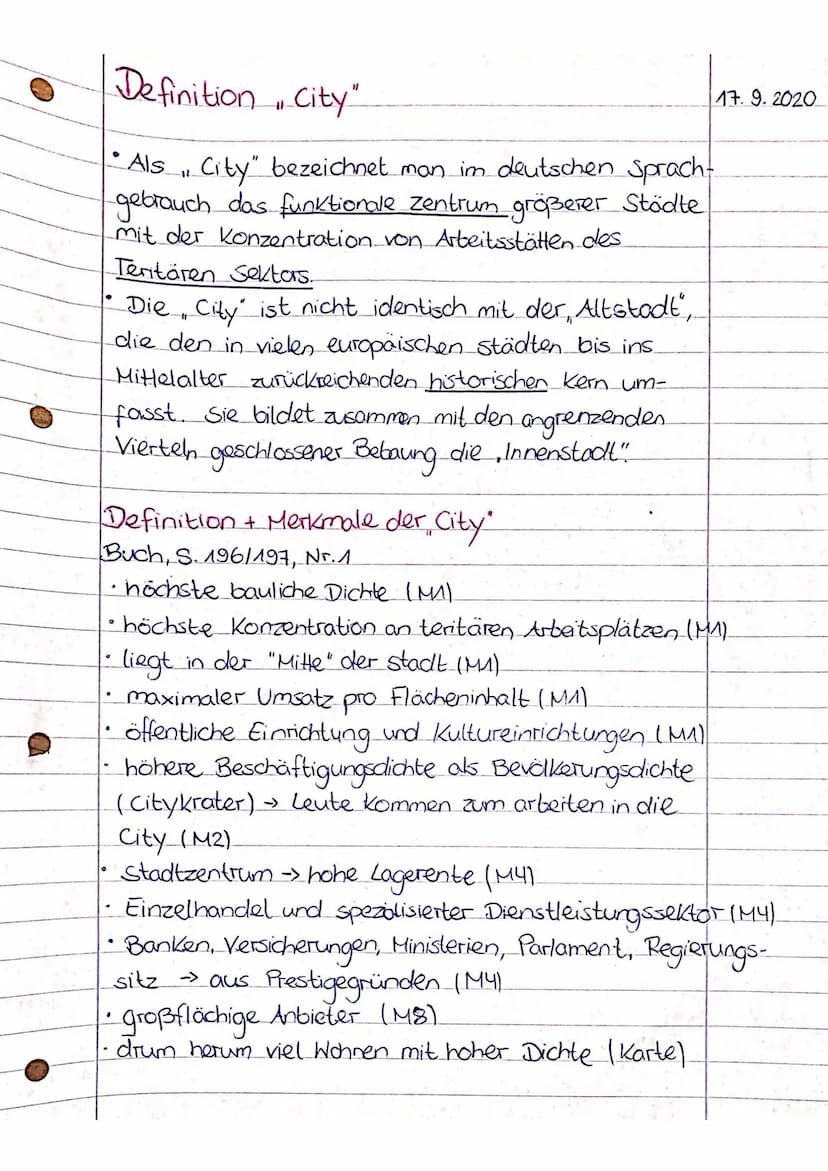 Definition „City"
17. 9. 2020
• Als „City" bezeichnet man im deutschen Sprach-
gebrauch das funktionale Zentrum größerer Städte
mit der Konzentration von Arbeitsstätten des
Teritären Sektors.
• Die „City" ist nicht identisch mit der „Altstadt",
die den in vielen europäischen Städten bis ins
Mittelalter zurückreichenden historischen Kern um-
fasst. Sie bildet zusammen mit den angrenzenden
Vierteln geschlossener Bebaung die „Innenstadt".
Definition + Merkmale der „City"
Buch, S. 196/197, Nr. 1
• höchste bauliche Dichte (M1)
• höchste Konzentration an teritären Arbeitsplätzen (M1)
• liegt in der "Mitte" der Stadt (M1)
• maximaler Umsatz pro Flächeninhalt (M1)
• öffentliche Einrichtung und Kultureinrichtungen (M1)
• höhere Beschäftigungsdichte als Bevölkerungsdichte
(Citykrater) → Leute kommen zum arbeiten in die
City (M2)
• Stadtzentrum → hohe Lagerente (M4)
• Einzelhandel und spezialisierter Dienstleistungssektor (M4)
• Banken, Versicherungen, Ministerien, Parlament, Regierungs-
sitz → aus Prestigegründen (M4)
• großflächige Anbieter (M8)
• drum herum viel Wohnen mit hoher Dichte (Karte)